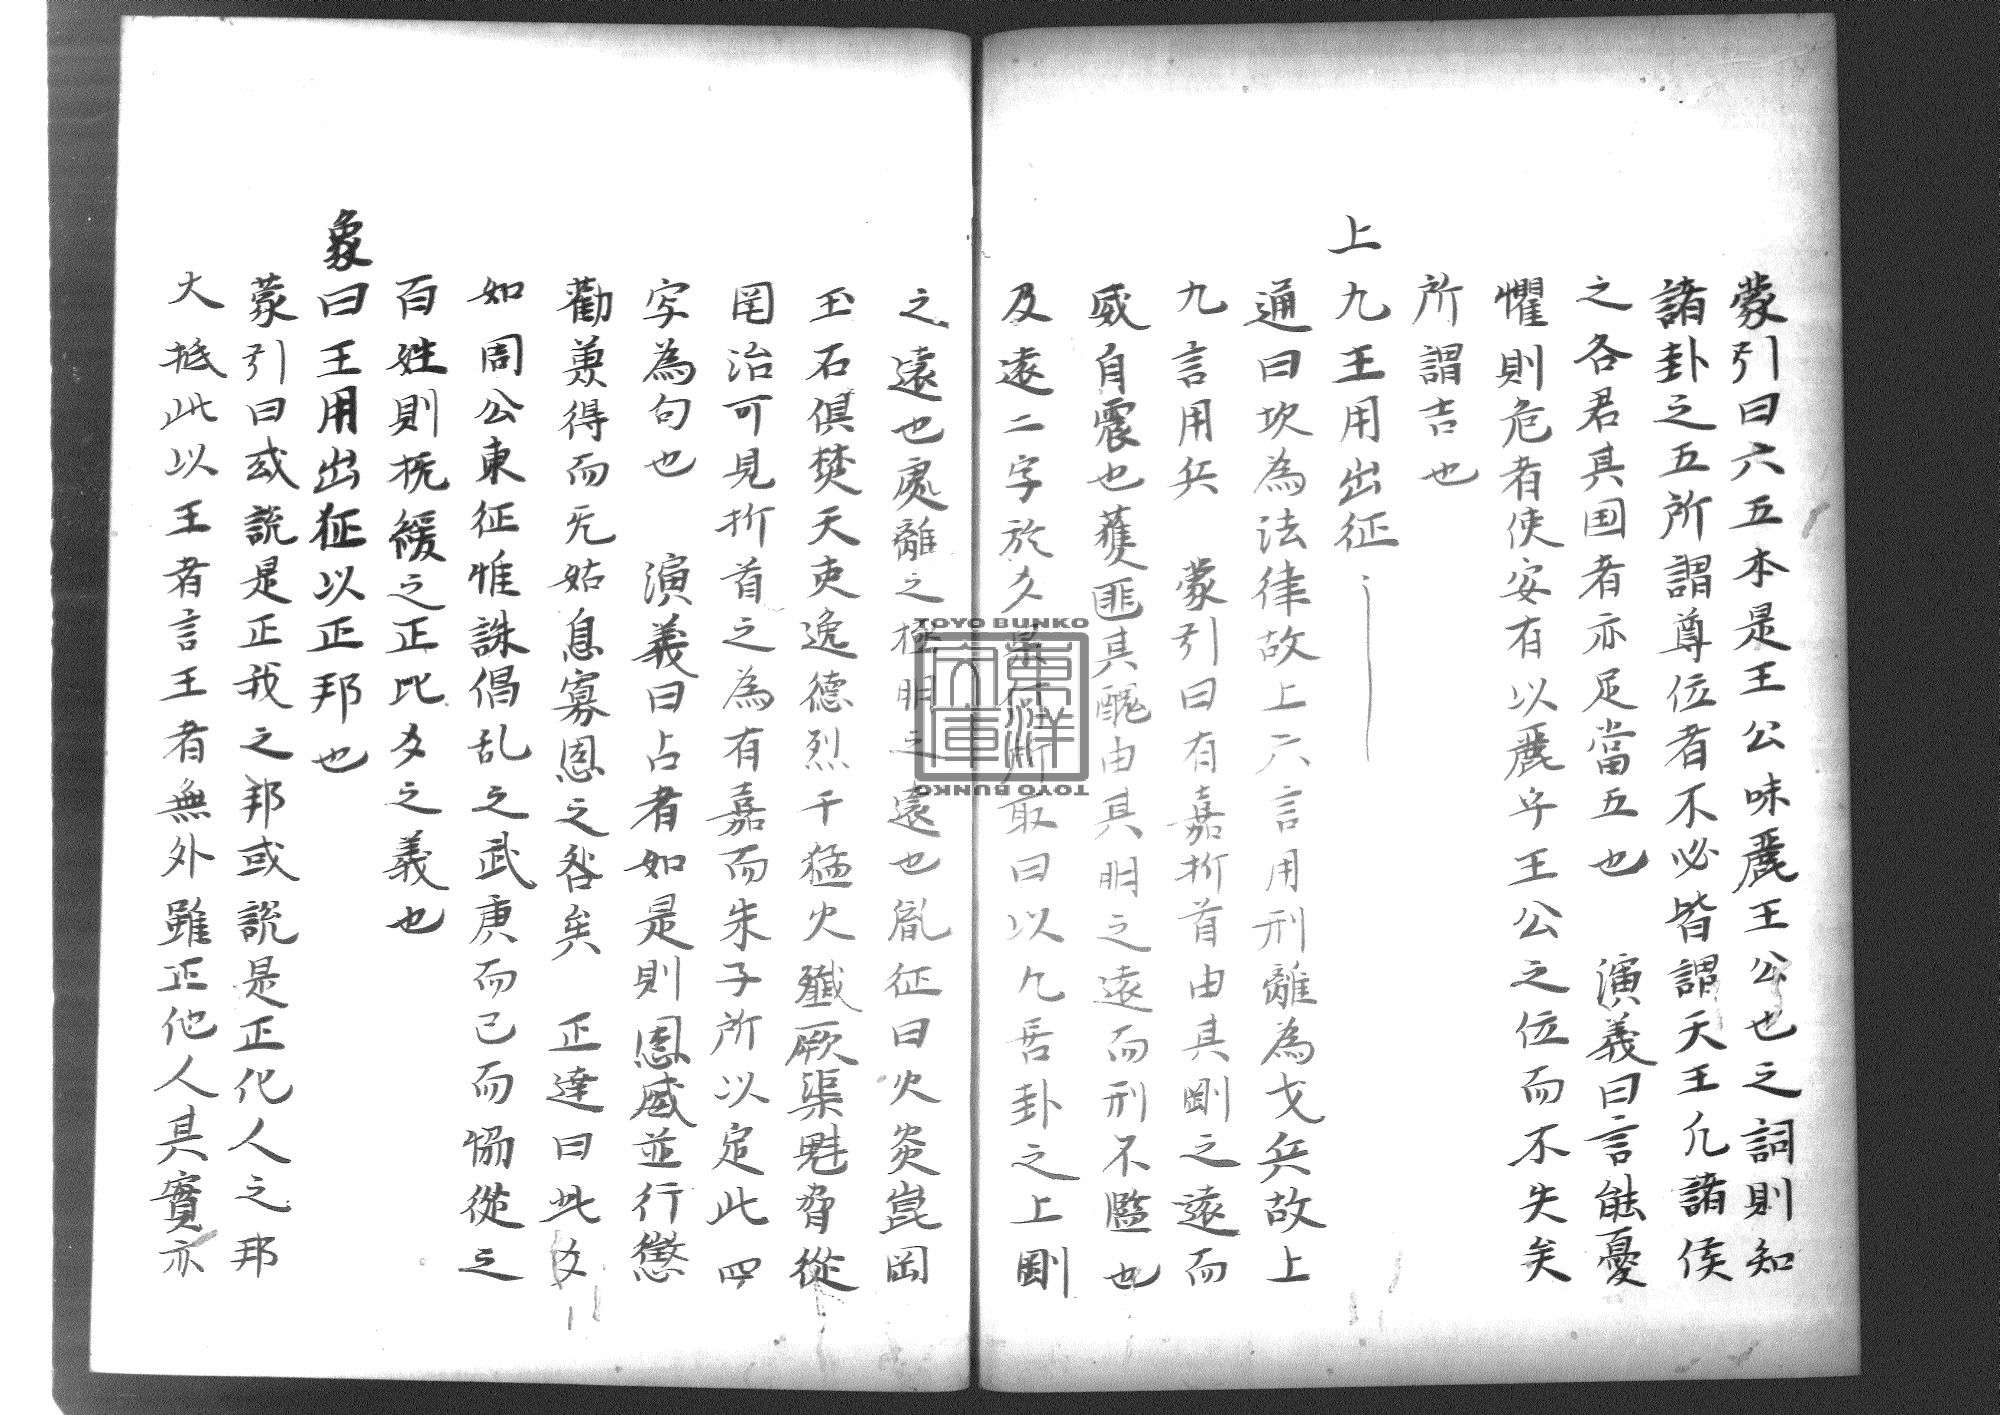 蒙引曰六五本是王公味麗王公也之詞則知
諸卦之五所謂尊位者不必皆謂天王凡諸侯
之各君其国者亦足當五也　演義曰言能憂
懼則危者使安有以麗乎王公之位而不失矣
所謂吉也
上九王用出征
通曰坎為法律故上六言用刑離為戈兵故上
九言用兵　蒙引曰有嘉折首由其剛之遠而
威自震也獲匪其醜由其明之遠而刑不濫也
及遠二字於爻 所取曰以凢吾卦之上剛
之遠也處離之極明之遠也胤征曰火炎崑岡
玉石俱焚天吏逸德烈于猛火殲厥渠魁脅從
罔治可見折首之為有嘉而朱子所以定此四
字為句也　演義曰占者如是則恩威並行懲
勸兼得而无姑息寡恩之咎矣　正達曰此爻
如周公東征惟誅倡乱之武庚而已而恊從之
百姓則抚緩之正此爻之義也
象曰王用出征以正邦也
蒙引曰或説是正我之邦或説是正化人之邦
大抵此以王者言王者無外雖正他人其實亦
TOYO BUNKO
東洋文庫
TOYO BUNKO